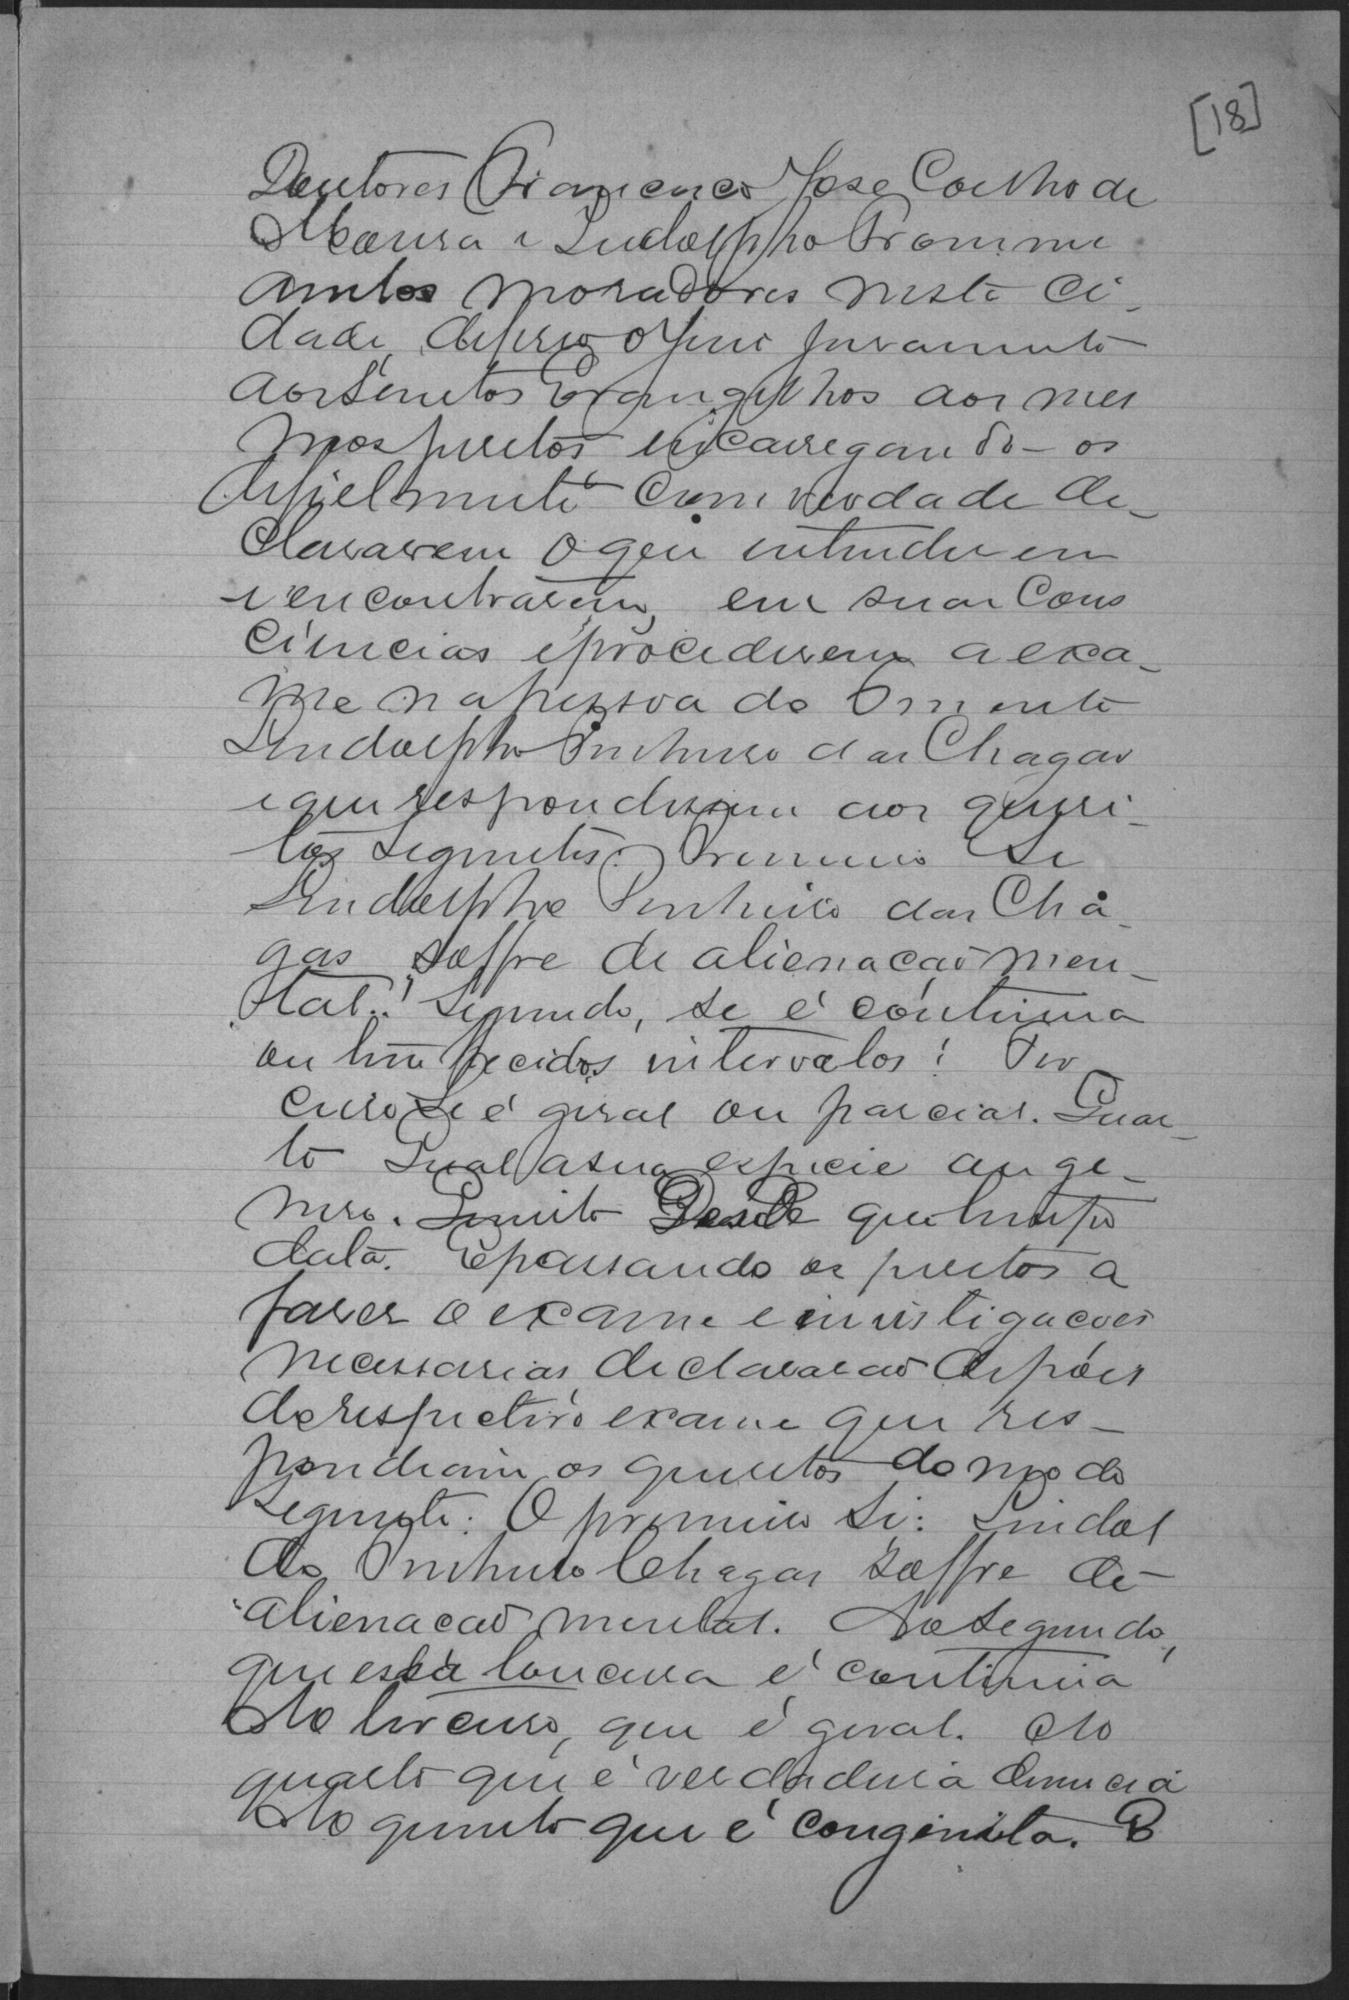 [18]
Doutores Francisco José Coelho de
Moura e Ludolpho Fromme
ambos moradores nesta Ci-
dade, deferio o Juiz juramento
aos Santos Evangelhos aos mes
mos peritos encarregando-os
de fielmente com verdade de-
clararem o que entenderem
e encontrarem, em suas Cons
ciencias e procederem a exa-
me na pessoa do Demente
Lindolpho Pinheiro das Chagas
e que respondessem aos quesi-
tos seguintes: Primeiro Se
Lindolpho Pinheiro das Cha
gas soffre de alienacaõ men-
tal. Segundo, se é continua
ou tem lucidos intervalos: Ter
ceiro se é geral ou parcial. Quar-
to Qual a sua especie ou ge-
nero. Quinto Desde que tempo
data. E passando os peritos a
fazer o exame e investigacoes
necessarias declararaõ depois
do respectivo exame que res-
pondiam os quesitos do modo
seguinte: O primeiro Si: Lindol
do Pinheiro Chagas soffre de
alienacaõ mental. Ao segundo,
que esta loucura é continua
Ao terceiro, que é geral. Ao
quarto que é verdadeira demencia
Ao quinto que é congenita. E